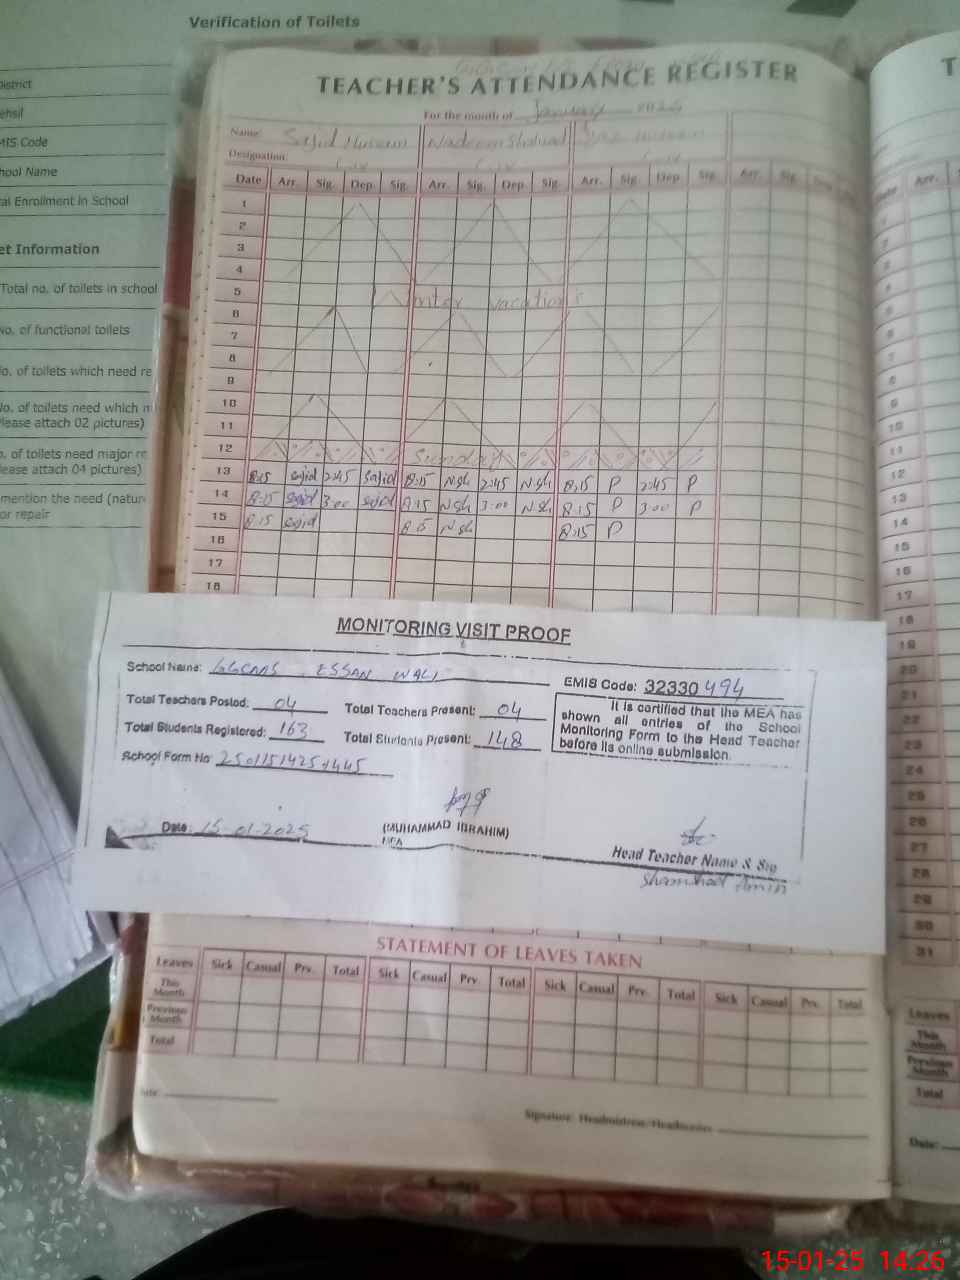 Verification of Toilets
District
MIS Code
School Name
Total Enrollment in School
Total no. of toilets in school
No. of functional toilets
No. of toilets which need re
No. of toilets need which
Please attach 02 pictures)
of toilets need major
Please attach 04 pictures)
mention the need
or repair
TEACHER'S ATTENDANCE REGISTER
For the month of January
Name: Sajid Hussain Nadeem Shahzad
Designation
Date Arr. Sig. Dep. Sig. Arr. Sig. Dep. Sig. Arr. Sig. Dep. Sig. Arr. Sig.
1
2
3
4
5 Winter vacations
6
7
8
9
10
11
12 Sunday
13 8:15 sajid 2:45 sajid 8:15 N.sh 2:45 N.sh 8:15 P 2:45 P
14 8:15 sajid 3:00 sajid 8:15 N.sh 3:00 N.sh 8:15 P 3:00 P
15 8:15 sajid 8:15 N.sh 8:15 P
16
17
18
MONITORING VISIT PROOF
School Name: ESSAN WALI EMIS Code: 32330494
Total Teachers Posted: 04 Total Teachers Present: 04
Total Students Registered: 163 Total Students Present: 148
School Form No
It is certified that the MEA has
shown all entries of the School
Monitoring Form to the Head Teacher
before its online submission.
Date: 15-01-2025 (MUHAMMAD IBRAHIM)
MEA
Head Teacher Name & Sig
Shamshad Amin
STATEMENT OF LEAVES TAKEN
Leaves Sick Casual Prv. Total Sick Casual Prv. Total Sick Casual Prv. Total Sick Casual Prv. Total
This Month
Previous Month
Total
Signature: Headmistress/Headmaster
Arr.
12
13
14
15
16
17
18
19
20
21
22
23
24
25
26
27
28
29
30
31
Leaves
This Month
Previous Month
Total
Date:
15-01-25 14:26